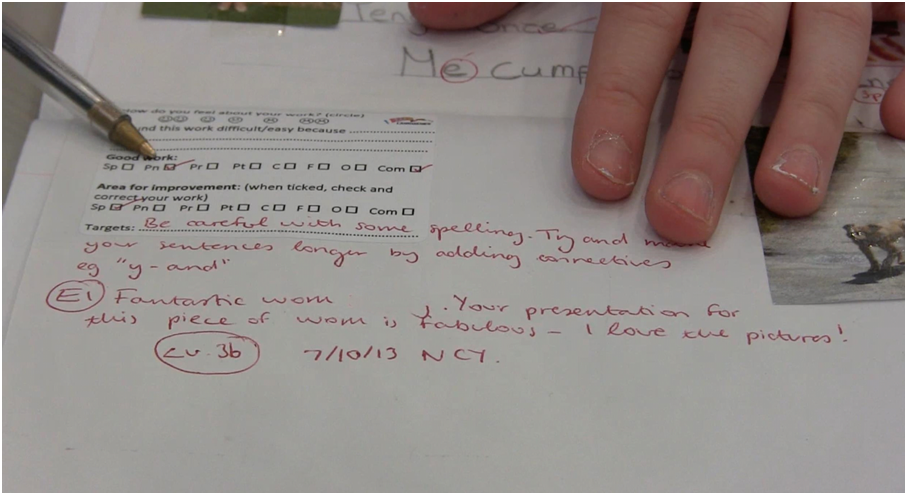 Me cump
How do you feel about your work? (circle)
nd this work difficult/easy because
Good work:
Sp Pn Pr Pt C F O Com
Area for improvement: (when ticked, check and
correct your work)
Sp Pn Pr Pt C F O Com
Targets: Be careful with some spelling. Try and
your sentences longer by adding connectives
eg "y - and"
E1 Fantastic work . Your presentation for
this piece of work is fabulous - I love the pictures!
Lv. 3b 7/10/13 NCY.